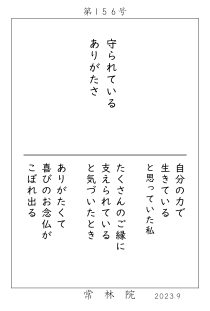 第156号
守られている
ありがたさ
自分の力で
生きている
と思っていた私
たくさんのご縁に
支えられている
と気づいたとき
ありがたくて
喜びのお念仏が
こぼれ出る
常林院 2023.9